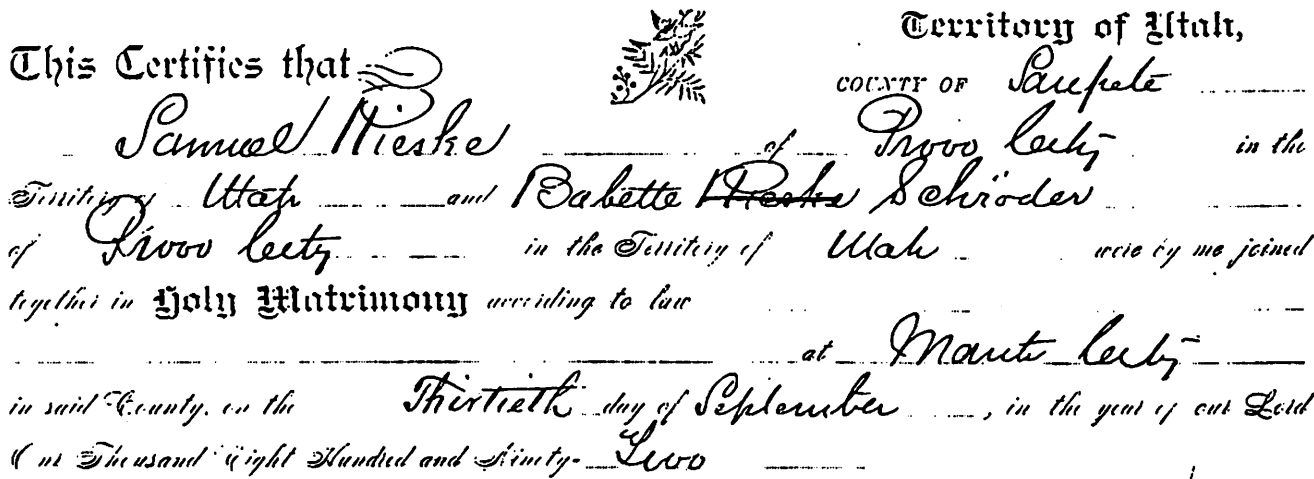 Territory of Utah,
This Certifies that
COUNTY OF Sanpete
Samuel Rieske of Provo City in the
Territory of Utah and Babette Rieske Schröder
of Provo City in the Territory of Utah were by me joined
together in Holy Matrimony according to law
at Manti City
in said County, on the Thirtieth day of September, in the year of our Lord
One Thousand Eight Hundred and Ninety-Two